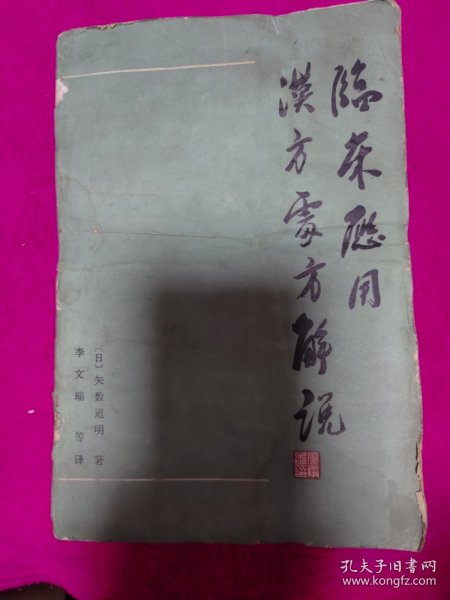 臨床應用
漢方處方解說
〔日〕矢数道明 著
李文瑞 等译
孔夫子旧书网
www.kongfz.com